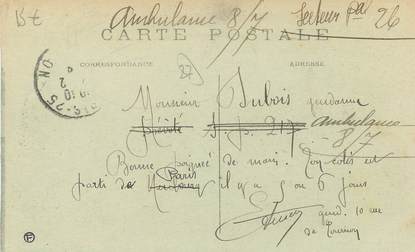 Ambulance 8/7 Secteur Pal 26
CARTE POSTALE
CORRESPONDANCE
ADRESSE
Monsieur Dubois gendarme
S. p. 217 ambulance
8/7
Bonne poignée de main. est
parti de Paris il y a 5 ou 6 jours
gend. 10 rue
de Tournon